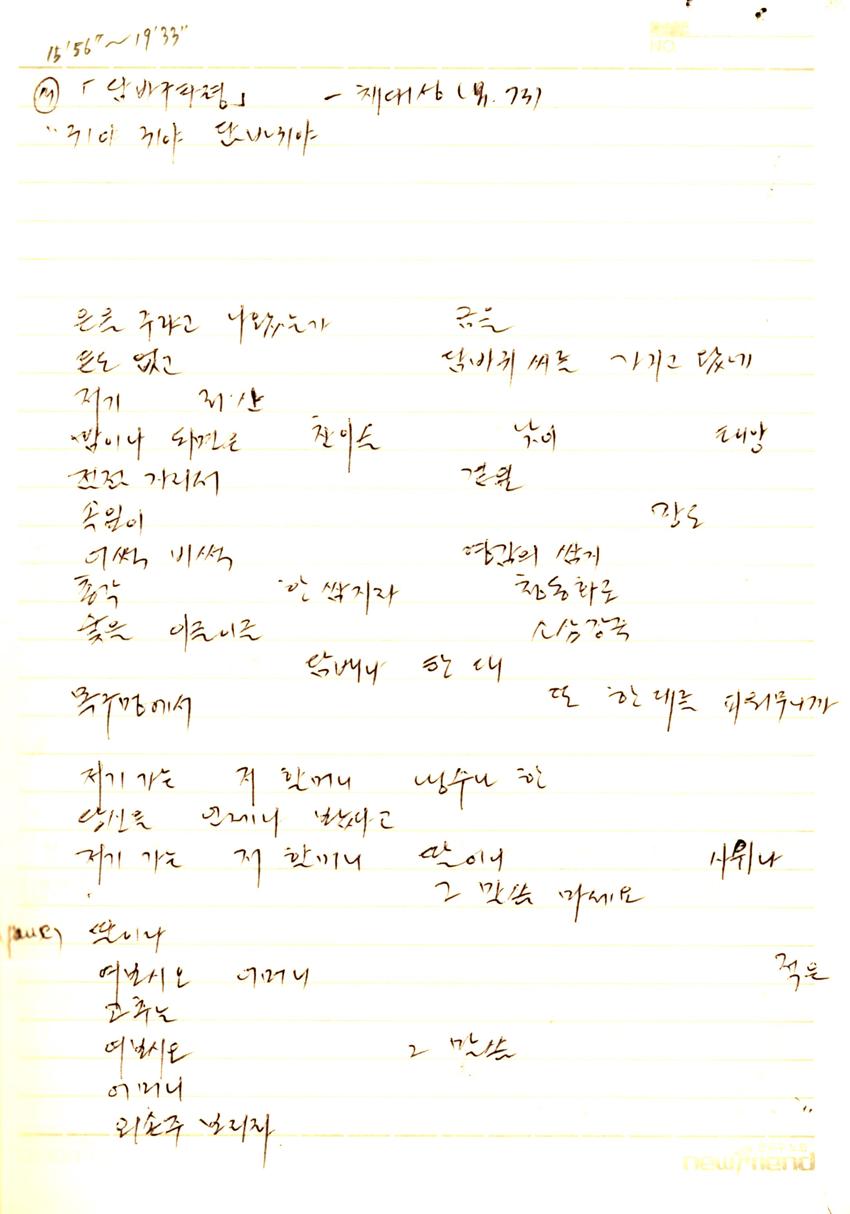 15'56"~19'33"
NO
「담바구타령」 - 채대상 (男. 73)
"귀야 귀야 담바귀야
은을 주라고 나왔는가 금을
은도 없고 담바귀 씨를 가지고 왔네
저기 저 산
밤이나 되면은 찬이슬 낮이 태양
전전 가리서
속잎이
어썩 비썩 영감의 쌈지
총각 한 쌈지자 청동화로
숯은 이글이글 소상강죽
담배나 한 대
목구멍에서 또 한 대를 피워무니까
저기 가는 저 할머니 냉수나 한
당신을 언제나 봤다고
저기 가는 저 할머니 딸이나 사위나
그 말씀 마세요
딸이나
여보시오 어머니 적은
고추는
여보시오 그 말씀
어머니
외손주 보리자 "
newfriend